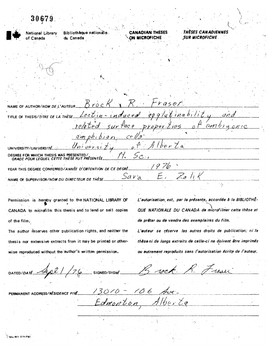 30679
National Library of Canada
Bibliothèque nationale du Canada
CANADIAN THESES ON MICROFICHE
THÈSES CANADIENNES SUR MICROFICHE
NAME OF AUTHOR/NOM DE L'AUTEUR Brock R. Fraser
TITLE OF THESIS/TITRE DE LA THÈSE Lectin-induced agglutinability and
related surface properties of embryonic
amphibian cells
UNIVERSITY/UNIVERSITÉ University of Alberta
DEGREE FOR WHICH THESIS WAS PRESENTED/
GRADE POUR LEQUEL CETTE THÈSE FUT PRÉSENTÉE M. Sc.
YEAR THIS DEGREE CONFERRED/ANNÉE D'OBTENTION DE CE DEGRÉ 1976
NAME OF SUPERVISOR/NOM DU DIRECTEUR DE THÈSE Sara E. Zalik
Permission is hereby granted to the NATIONAL LIBRARY OF
CANADA to microfilm this thesis and to lend or sell copies
of the film.
The author reserves other publication rights, and neither the
thesis nor extensive extracts from it may be printed or other-
wise reproduced without the author's written permission.
L'autorisation est, par la présente, accordée à la BIBLIOTHÈ-
QUE NATIONALE DU CANADA de microfilmer cette thèse et
de prêter ou de vendre des exemplaires du film.
L'auteur se réserve les autres droits de publication; ni la
thèse ni de longs extraits de celle-ci ne doivent être imprimés
ou autrement reproduits sans l'autorisation écrite de l'auteur.
DATED/DATÉ Sept 1/76 SIGNED/SIGNÉ Brock R Fraser
PERMANENT ADDRESS/RÉSIDENCE FIXE 13010 - 106 Ave
Edmonton, Alberta